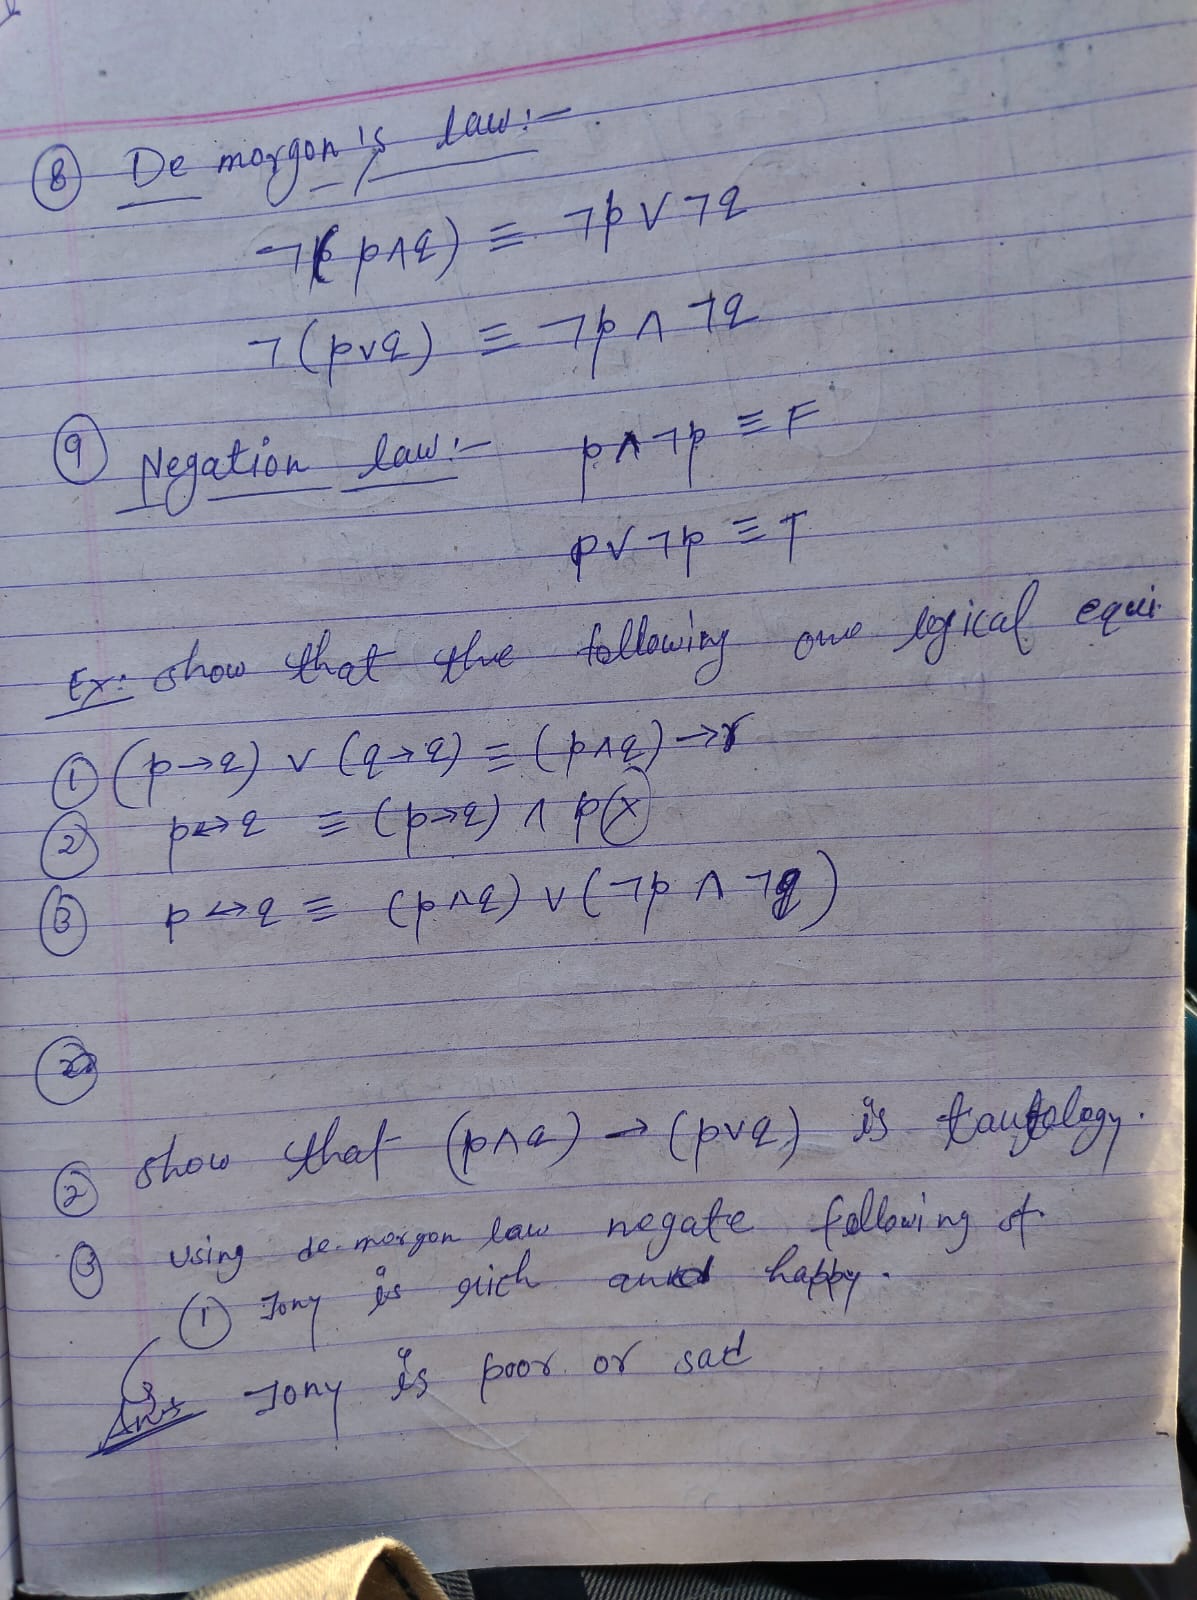 ⑧ De morgon's law:-
¬(p∧q) ≡ ¬p∨¬q
¬(p∨q) ≡ ¬p∧¬q
⑨ Negation law:- p∧¬p ≡ F
p∨¬p ≡ T
Ex: show that the following are logical equi.
① (p→q) ∨ (q→q) ≡ (p∧q)→r
② p↔q ≡ (p→q) ∧ p(x)
③ p↔q ≡ (p∧q) ∨ (¬p ∧ ¬q)
② show that (p∧q) → (p∨q) is tautology.
③ using de-morgon law negate following st.
① Jony is rich and happy.
Ans Jony is poor or sad